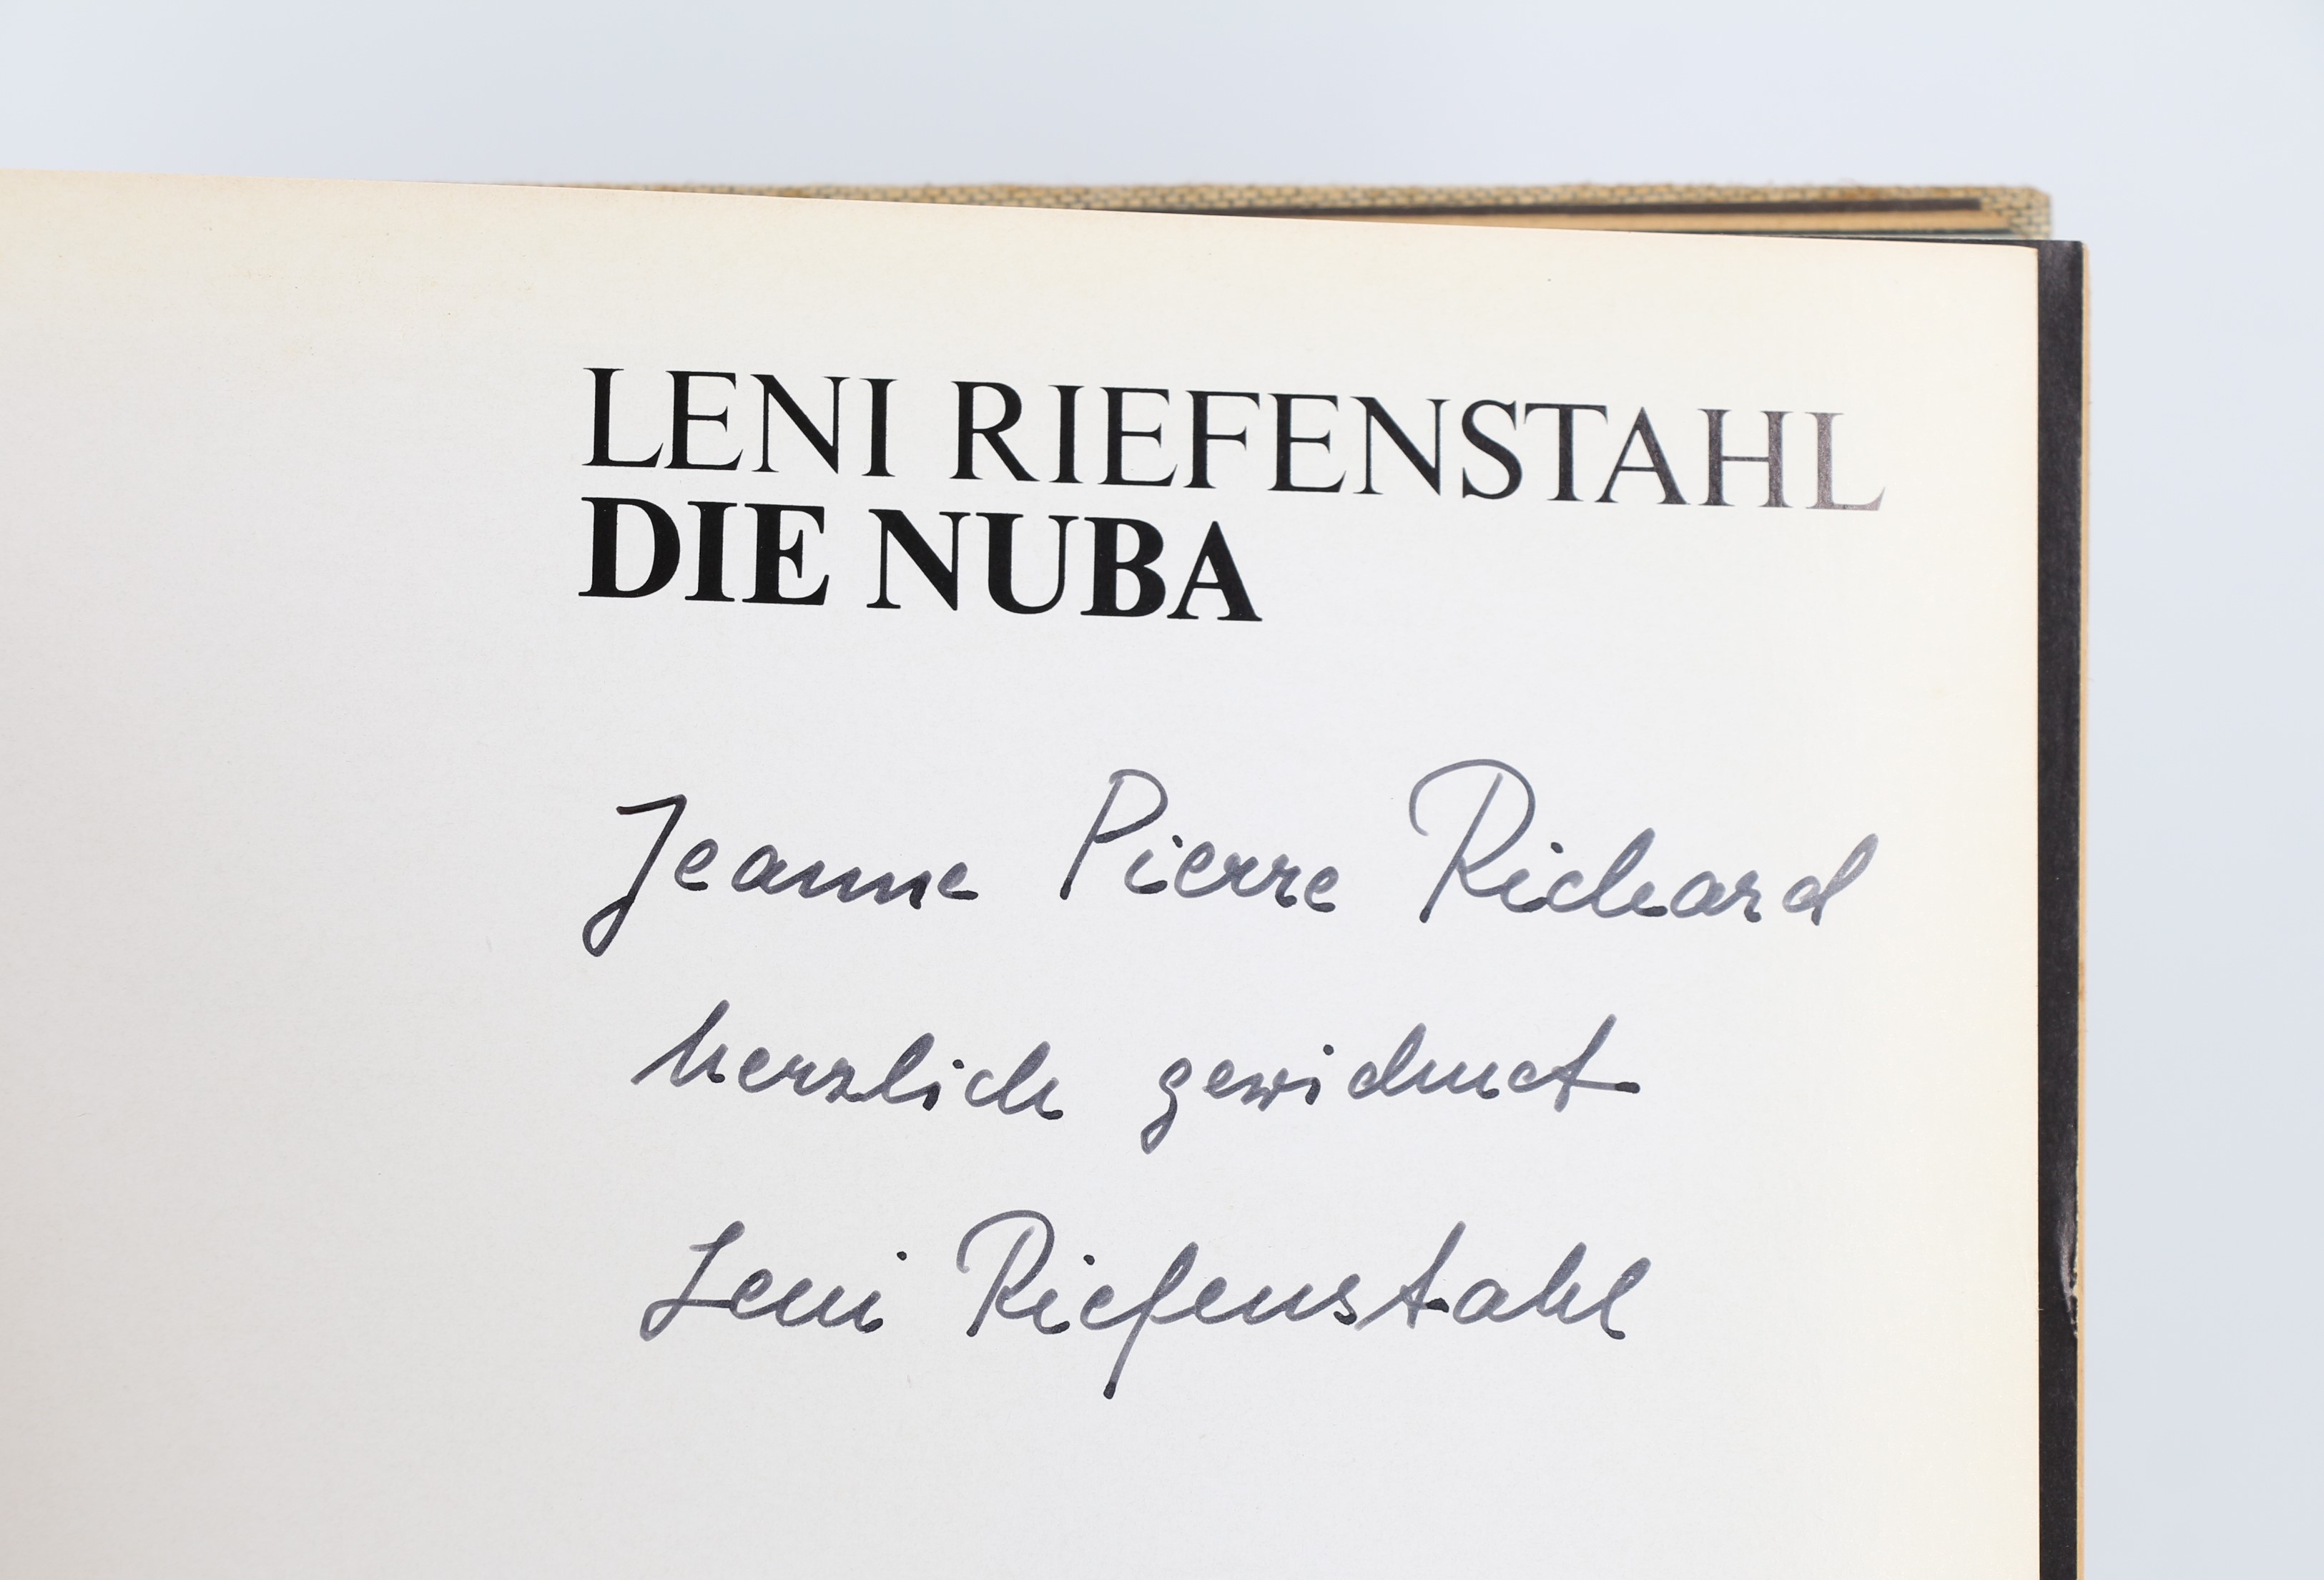 LENI RIEFENSTAHL
DIE NUBA
Jeanne Pierre Richard
herzlich gewidmet
Leni Riefenstahl